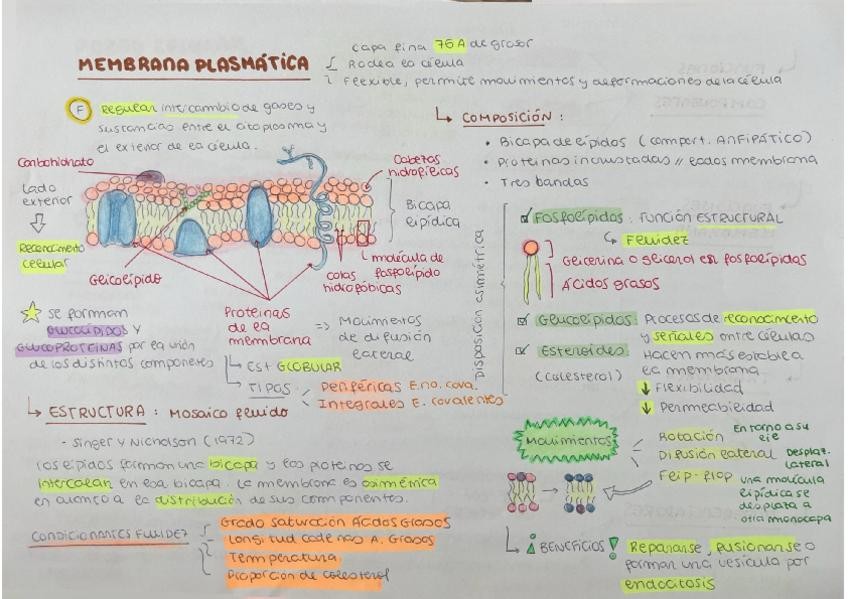 MEMBRANA PLASMÁTICA
capa fina 75A de grosor
Rodea la célula
Flexible, permite movimientos y deformaciones de la célula
F
Regular intercambio de gases y
sustancias entre el citoplasma y
el exterior de la célula.
Carbohidrato
Lado
exterior
Reconocimiento
celular
Glicolípido
Cabezas
hidrofílicas
Bicapa
lipídica
molécula de
fosfolípido
colas
hidrofóbicas
Proteínas
de la
membrana
=> Movimientos
de difusión
lateral
Est GLOBULAR
TIPOS
Periféricas E.no.cova.
Integrales E. covalentes
se forman
GLUCOLÍPIDOS y
GLUCOPROTEÍNAS por la unión
de los distintos componentes
ESTRUCTURA : Mosaico fluido
- Singer y Nicholson (1972)
Los lípidos forman una bicapa y las proteínas se
intercalan en esa bicapa. La membrana es asimétrica
en cuanto a la distribución de sus componentes.
CONDICIONANTES FLUIDEZ
Grado saturación Ácidos Grasos
Longitud cadenas A. Grasos
Temperatura
Proporción de colesterol
COMPOSICIÓN :
• Bicapa de lípidos (comport. ANFIPÁTICO)
• Proteínas incrustadas // lados membrana
• Tres bandas
Disposición asimétrica
Fosfolípidos : FUNCIÓN ESTRUCTURAL
Fluidez
Glicerina o glicerol en fosfolípidos
Ácidos grasos
Glucolípidos: Procesos de reconocimiento
y señales entre células
Esteroides:
(colesterol)
Hacen más estable a
la membrana
↓ Flexibilidad
↓ Permeabilidad
Movimientos
Rotación
Entorno a su
eje
Difusión lateral
Desplaz.
lateral
Flip-flop
una molécula
lipídica se
desplaza a
otra monocapa
¡BENEFICIOS!
Repararse, fusionarse o
formar una vesícula por
endocitosis